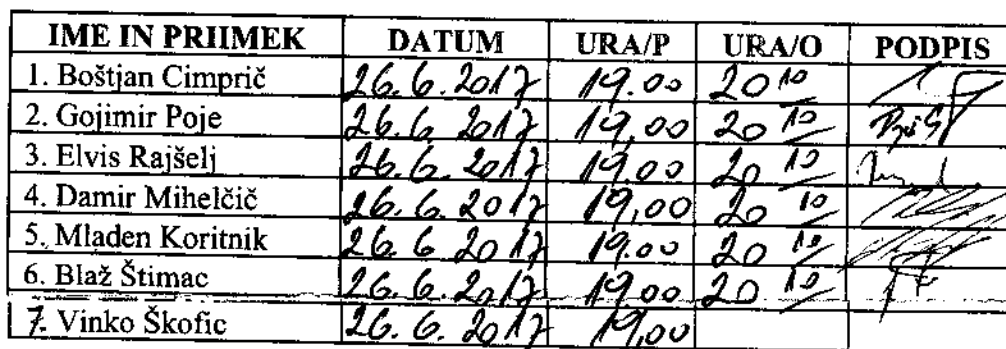 IME IN PRIIMEK DATUM URA/P URA/O PODPIS
1. Boštjan Cimprič 26.6.2017 19.00 20 10
2. Gojimir Poje 26.6.2017 19,00 20 10
3. Elvis Rajšelj 26.6.2017 19.00 20 10
4. Damir Mihelčič 26.6.2017 19,00 20 10
5. Mladen Koritnik 26.6.2017 19.00 20 10
6. Blaž Štimac 26.6.2017 19.00 20 10
7. Vinko Škofic 26.6.2017 19,00